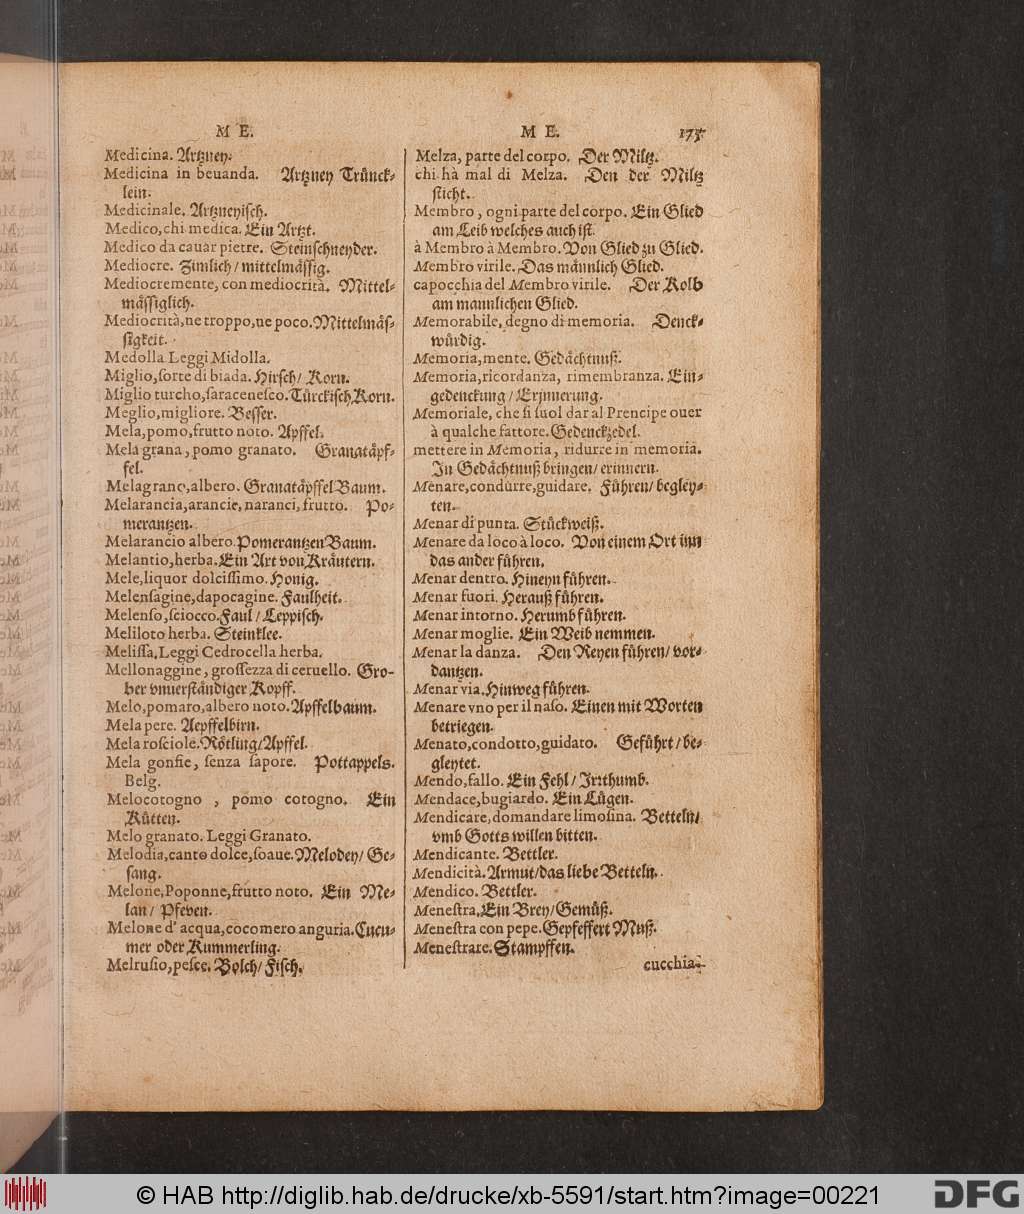 M E.
Medicina. Artzney.
Medicina in beuanda. Artzney Trünck-
lein.
Medicinale. Artzneyisch.
Medico, chi medica. Ein Artzt.
Medico da cauar pietre. Steinschneyder.
Mediocre. Zimlich / mittelmässig.
Mediocremente, con mediocrità. Mittel-
mässiglich.
Mediocrità, ne troppo, ne poco. Mittelmäs-
sigkeit.
Medolla Leggi Midolla.
Miglio, sorte di biada. Hirsch / Korn.
Miglio turcho, saracenesco. Türckisch Korn.
Meglio, migliore. Besser.
Mela, pomo, frutto noto. Apffel.
Mela grana, pomo granato. Granatäpf-
fel.
Melagrano, albero. Granatäpffel Baum.
Melarancia, arancie, naranci, frutto. Po-
merantzen.
Melarancio albero. Pomerantzen Baum.
Melantio, herba. Ein Art von Kräutern.
Mele, liquor dolcissimo. Honig.
Melensagine, dapocagine. Faulheit.
Melenso, sciocco. Faul / Leppisch.
Meliloto herba. Steinklee.
Melissa, Leggi Cedrocella herba.
Mellonaggine, grossezza di ceruello. Gro-
ber vnuerständiger Kopff.
Melo, pomaro, albero noto. Apffelbaum.
Mela pere. Aepffelbirn.
Mela rosciole. Rötling / Apffel.
Mela gonfie, senza sapore. Pottappels.
Belg.
Melocotogno, pomo cotogno. Ein
Kütten.
Melo granato. Leggi Granato.
Melodia, canto dolce, soaue. Melodey / Ge-
sang.
Melone, Poponne, frutto noto. Ein Me-
lan / Pfeven.
Melone d'acqua, cocomero anguria. Cucu-
mer oder Kummerling.
Melrusio, pesce. Bolch / Fisch.
M E. 175
Melza, parte del corpo. Der Miltz.
chi hà mal di Melza. Den der Miltz
sticht.
Membro, ogni parte del corpo. Ein Glied
am Leib welches auch ist.
à Membro à Membro. Von Glied zu Glied.
Membro virile. Das männlich Glied.
capocchia del Membro virile. Der Kolb
am mannlichen Glied.
Memorabile, degno di memoria. Denck-
würdig.
Memoria, mente. Gedächtnuß.
Memoria, ricordanza, rimembranza. Ein-
gedenckung / Erjnnerung.
Memoriale, che si suol dar al Prencipe ouer
à qualche fattore. Gedenckzedel.
mettere in Memoria, ridurre in memoria.
In Gedächtnuß bringen / erinnern.
Menare, condurre, guidare. Führen / begley-
ten.
Menar di punta. Stückweiß.
Menare da loco à loco. Von einem Ort inn
das ander führen.
Menar dentro. Hineyn führen.
Menar fuori. Herauß führen.
Menar intorno. Herumb führen.
Menar moglie. Ein Weib nemmen.
Menar la danza. Den Reyen führen / vor-
dantzen.
Menar via. Hinweg führen.
Menare vno per il naso. Einen mit Worten
betriegen.
Menato, condotto, guidato. Geführt / be-
gleytet.
Mendo, fallo. Ein Fehl / Irrthumb.
Mendace, bugiardo. Ein Lügen.
Mendicare, domandare limosina. Betteln /
vmb Gotts willen bitten.
Mendicante. Bettler.
Mendicità. Armut / das liebe Betteln.
Mendico. Bettler.
Menestra, Ein Brey / Gemüß.
Menestra con pepe. Gepfeffert Muß.
Menestrare. Stampffen.
cucchia-
© HAB http://diglib.hab.de/drucke/xb-5591/start.htm?image=00221
DFG